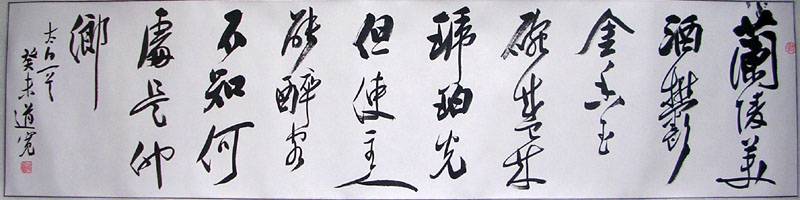 蘭陵美
酒鬱
金香玉
碗盛来
琥珀光
但使主人
能醉客
不知何
處是他
鄉
太白
癸未道寬